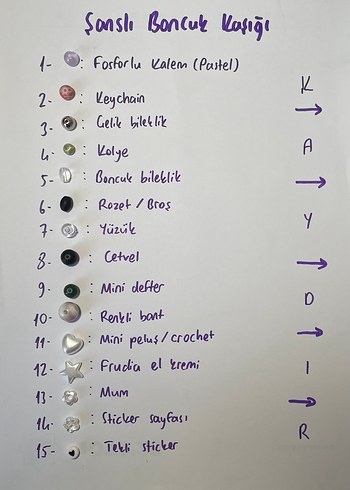 Şanslı Boncuk Kaşığı
1- : Fosforlu Kalem (Pastel)
2- : Keychain
3- : Çelik bileklik
4- : Kolye
5- : Boncuk bileklik
6- : Rozet / Broş
7- : Yüzük
8- : Cetvel
9- : Mini defter
10- : Renkli bant
11- : Mini peluş / crochet
12- : Frudia el kremi
13- : Mum
14- : Sticker sayfası
15- : Tekli sticker
K
→
A
→
Y
→
D
→
I
→
R